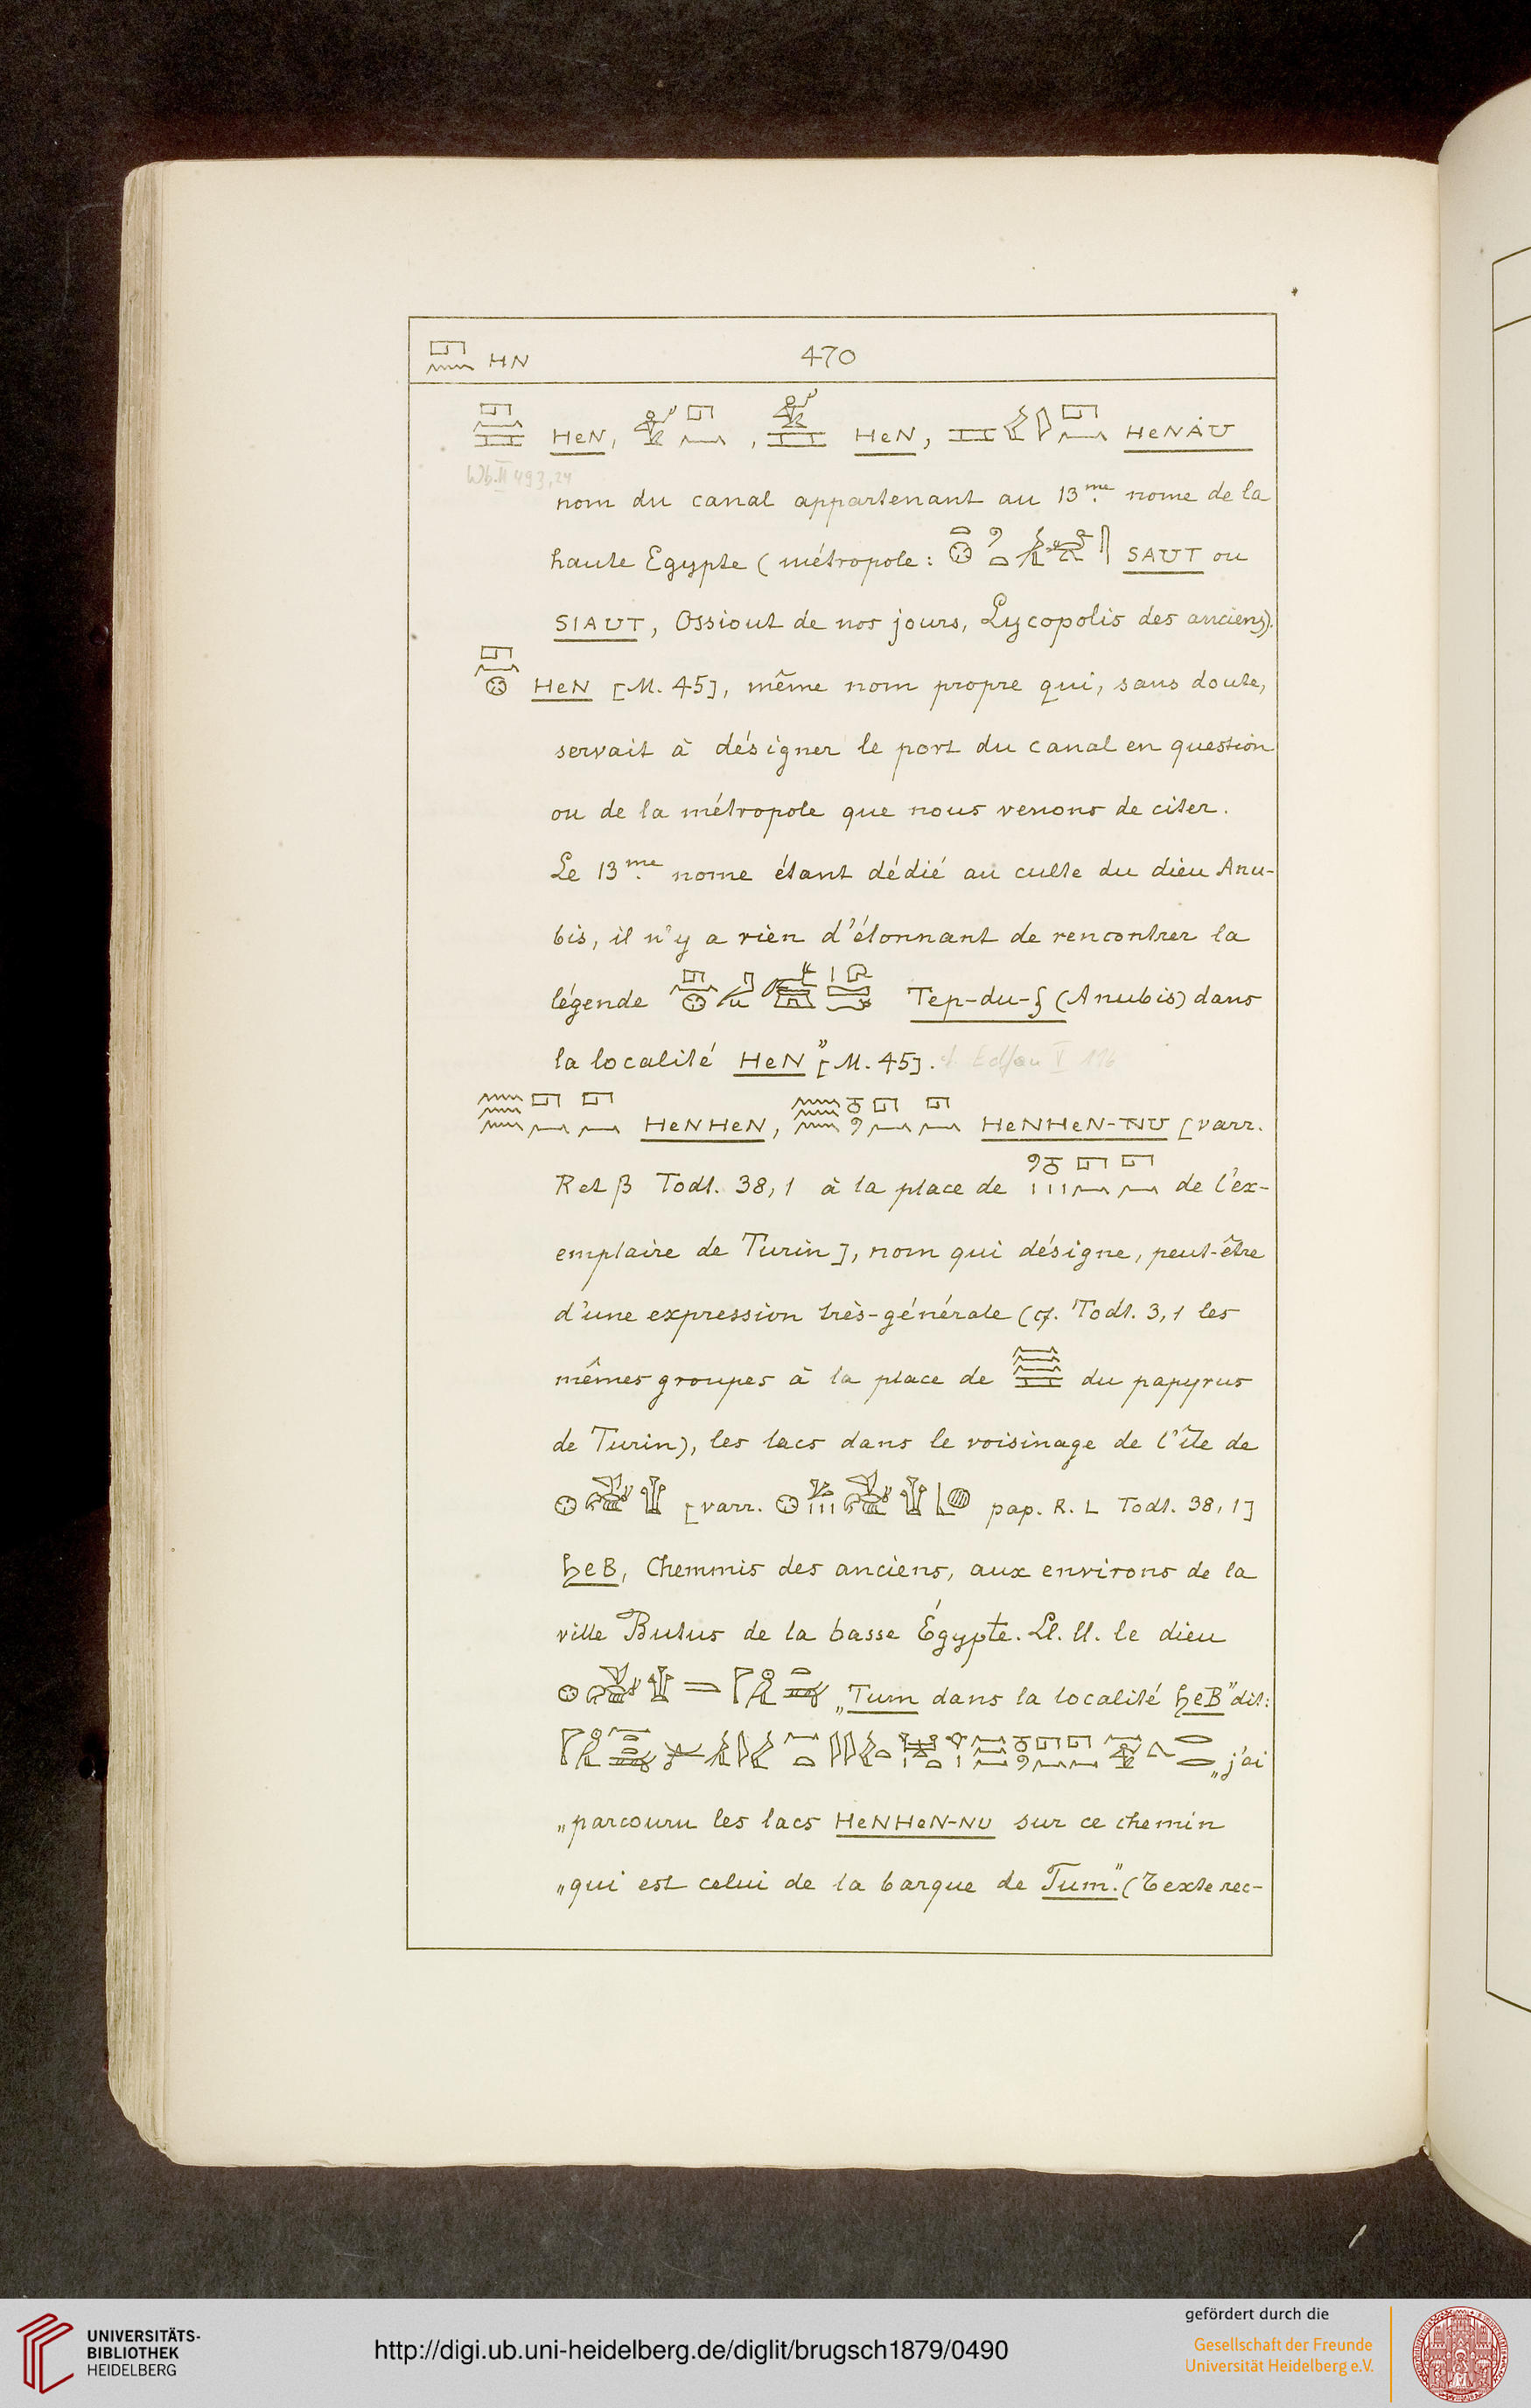 HN 470
HeN, , HeN, HeNÀU
Wb. II 493,24
nom du canal appartenant au 13me. nome de la
haute Egypte (métropole: SAUT ou
SIAUT, Ossiout de nos jours, Lycopolis des anciens).
HeN [M. 45], même nom propre qui, sans doute,
servait à désigner le port du canal en question
ou de la métropole que nous venons de citer.
Le 13me. nome étant dédié au culte du dieu Anu-
bis, il n'y a rien d'étonnant de rencontrer la
légende Tep-du-f (Anubis) dans
la localité HeN" [M. 45]. Edfou V
HeNHeN, HeNHeN-NU [varr.
R et β Todt. 38,1 à la place de de l'ex-
emplaire de Turin], nom qui désigne, peut-être
d'une expression très-générale (cf. Todt. 3,1 les
mêmes groupes à la place de du papyrus
de Turin), les lacs dans le voisinage de l'île de
[varr. pap. R. L Todt. 38,1]
ḫeB, Chemmis des anciens, aux environs de la
ville Butus de la basse Égypte. Ll. ll. le dieu
„Tum dans la localité ḫeB" dit:
„j'ai
„parcouru les lacs HeNHeN-NU sur ce chemin
„qui est celui de la barque de Tum." (Texte rec-
UNIVERSITÄTS-
BIBLIOTHEK
HEIDELBERG
http://digi.ub.uni-heidelberg.de/diglit/brugsch1879/0490
gefördert durch die
Gesellschaft der Freunde
Universität Heidelberg e.V.